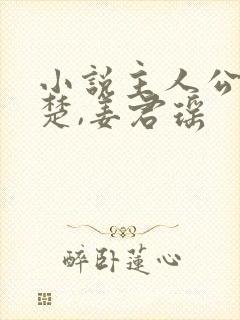 小说主人公
楚,姜君瑶
醉卧莲心